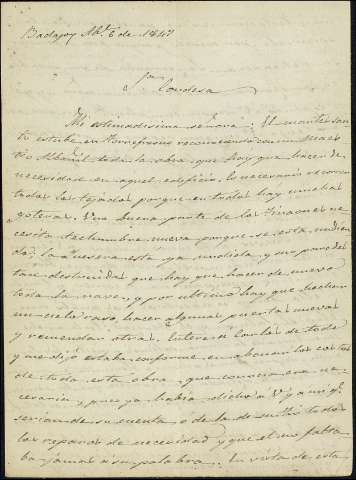 Badajoz Ab.l 6 de 1847
Sra. Condesa
Mi estimadisima señora: El martes san-
to estube en Torrefresno reconociendo con un maes-
tro Albañil toda la obra que hay que hacer de
necesidad en aquel edificio. Es necesario recorrer
todos los tejados porque en todos hay muchas
goteras. Una buena parte de los tinaones ne-
cesita techumbre nueva porque se está undien-
do; la quesera esta ya undida y sus paredes
tan destruidas que hay que hacer de nuevo
toda la nave, y por ultimo hay que hechar
un cielo raso, hacer algunas puertas nuevas
y remendar otras. Enteré á Carlos de todo
y me dijo estaba conforme en abonar los costos
de toda esta obra, que conocia era ne-
cesaria y pues ya habia dicho á V. y á mi q.e
serian de su cuenta ó de la de su tio todos
los reparos de necesidad y que el no falta-
ba jamas á su palabra. En vista de esta